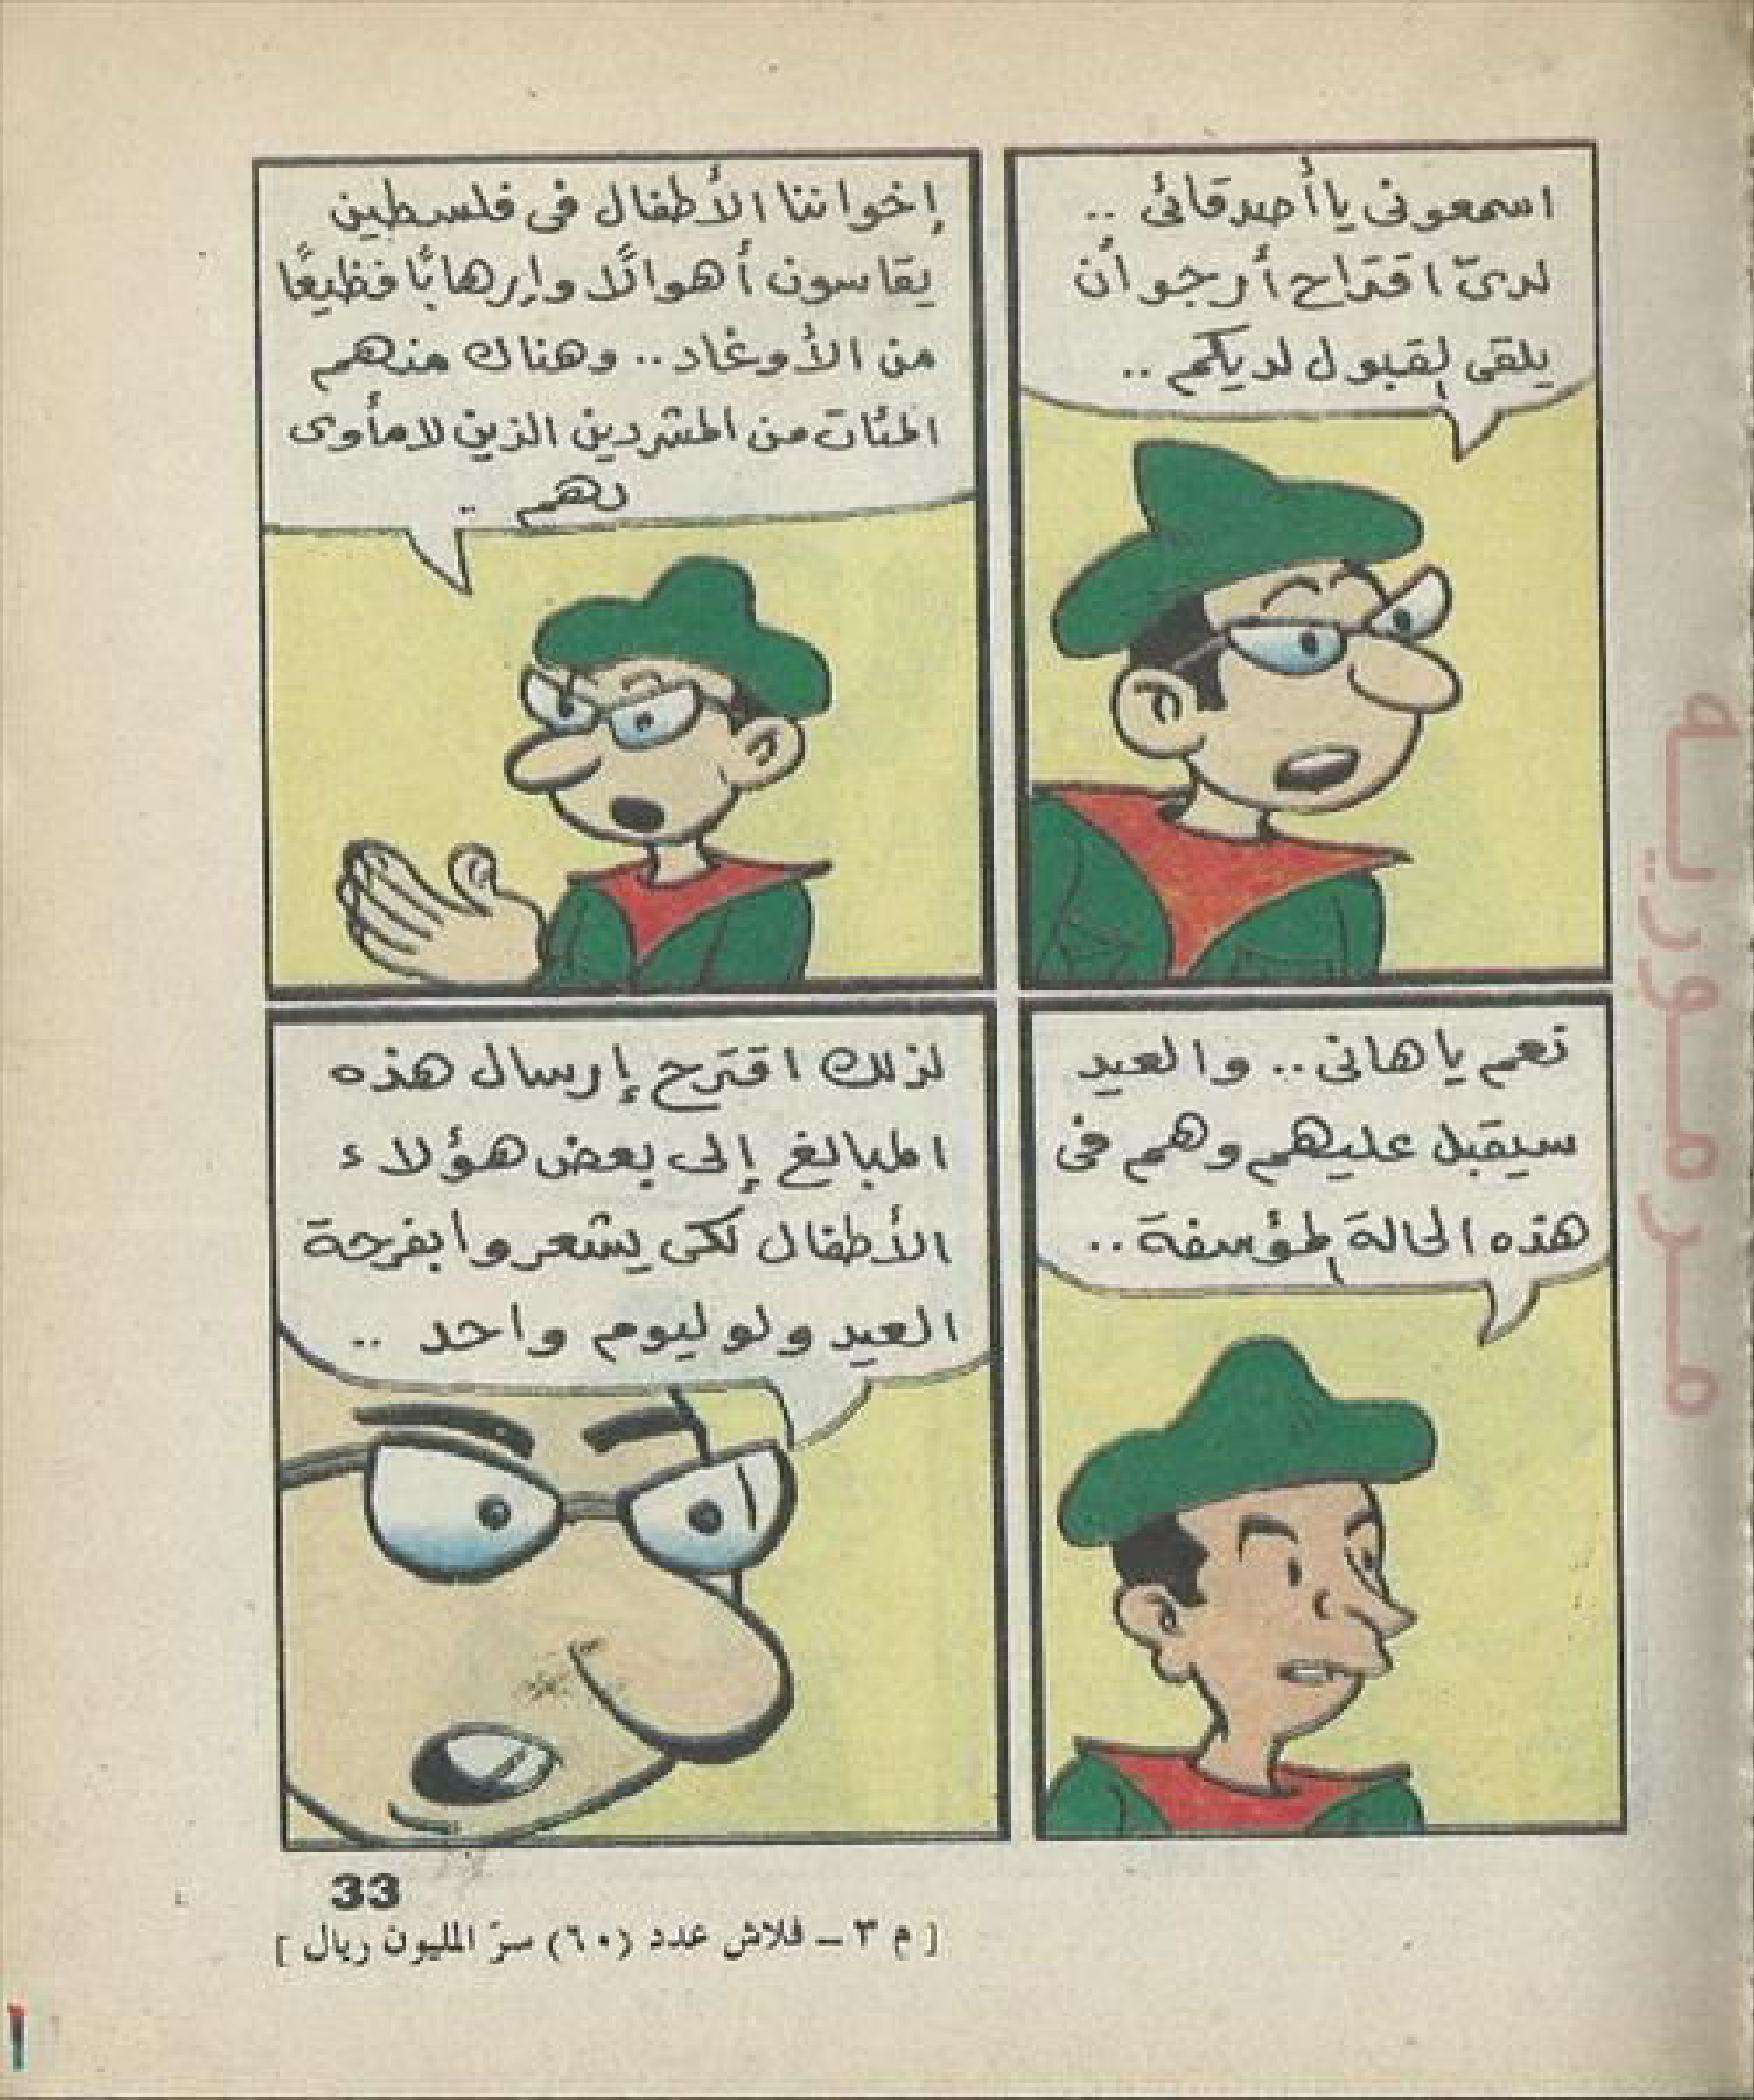 اسمعونى يا أصدقائى ..
لدىّ اقتراح أرجو أن
يلقى لقبول لديكم ..
إخواننا الأطفال فى فلسطين
يقاسون أهوالًا وإرهابًا فظيعًا
من الأوغاد .. وهناك منهم
المئات من المشردين الذين لا مأوى
لهم ..
نعم يا هانى .. والعيد
سيقبل عليهم وهم فى
هذه الحالة المؤسفة ..
لذلك اقترح إرسال هذه
المبالغ إلى بعض هؤلاء
الأطفال لكى يشعروا بفرحة
العيد ولو ليوم واحد ..
33
[ م ٣ ــ فلاش عدد (٦٠) سرّ المليون ريال ]
مرموريه